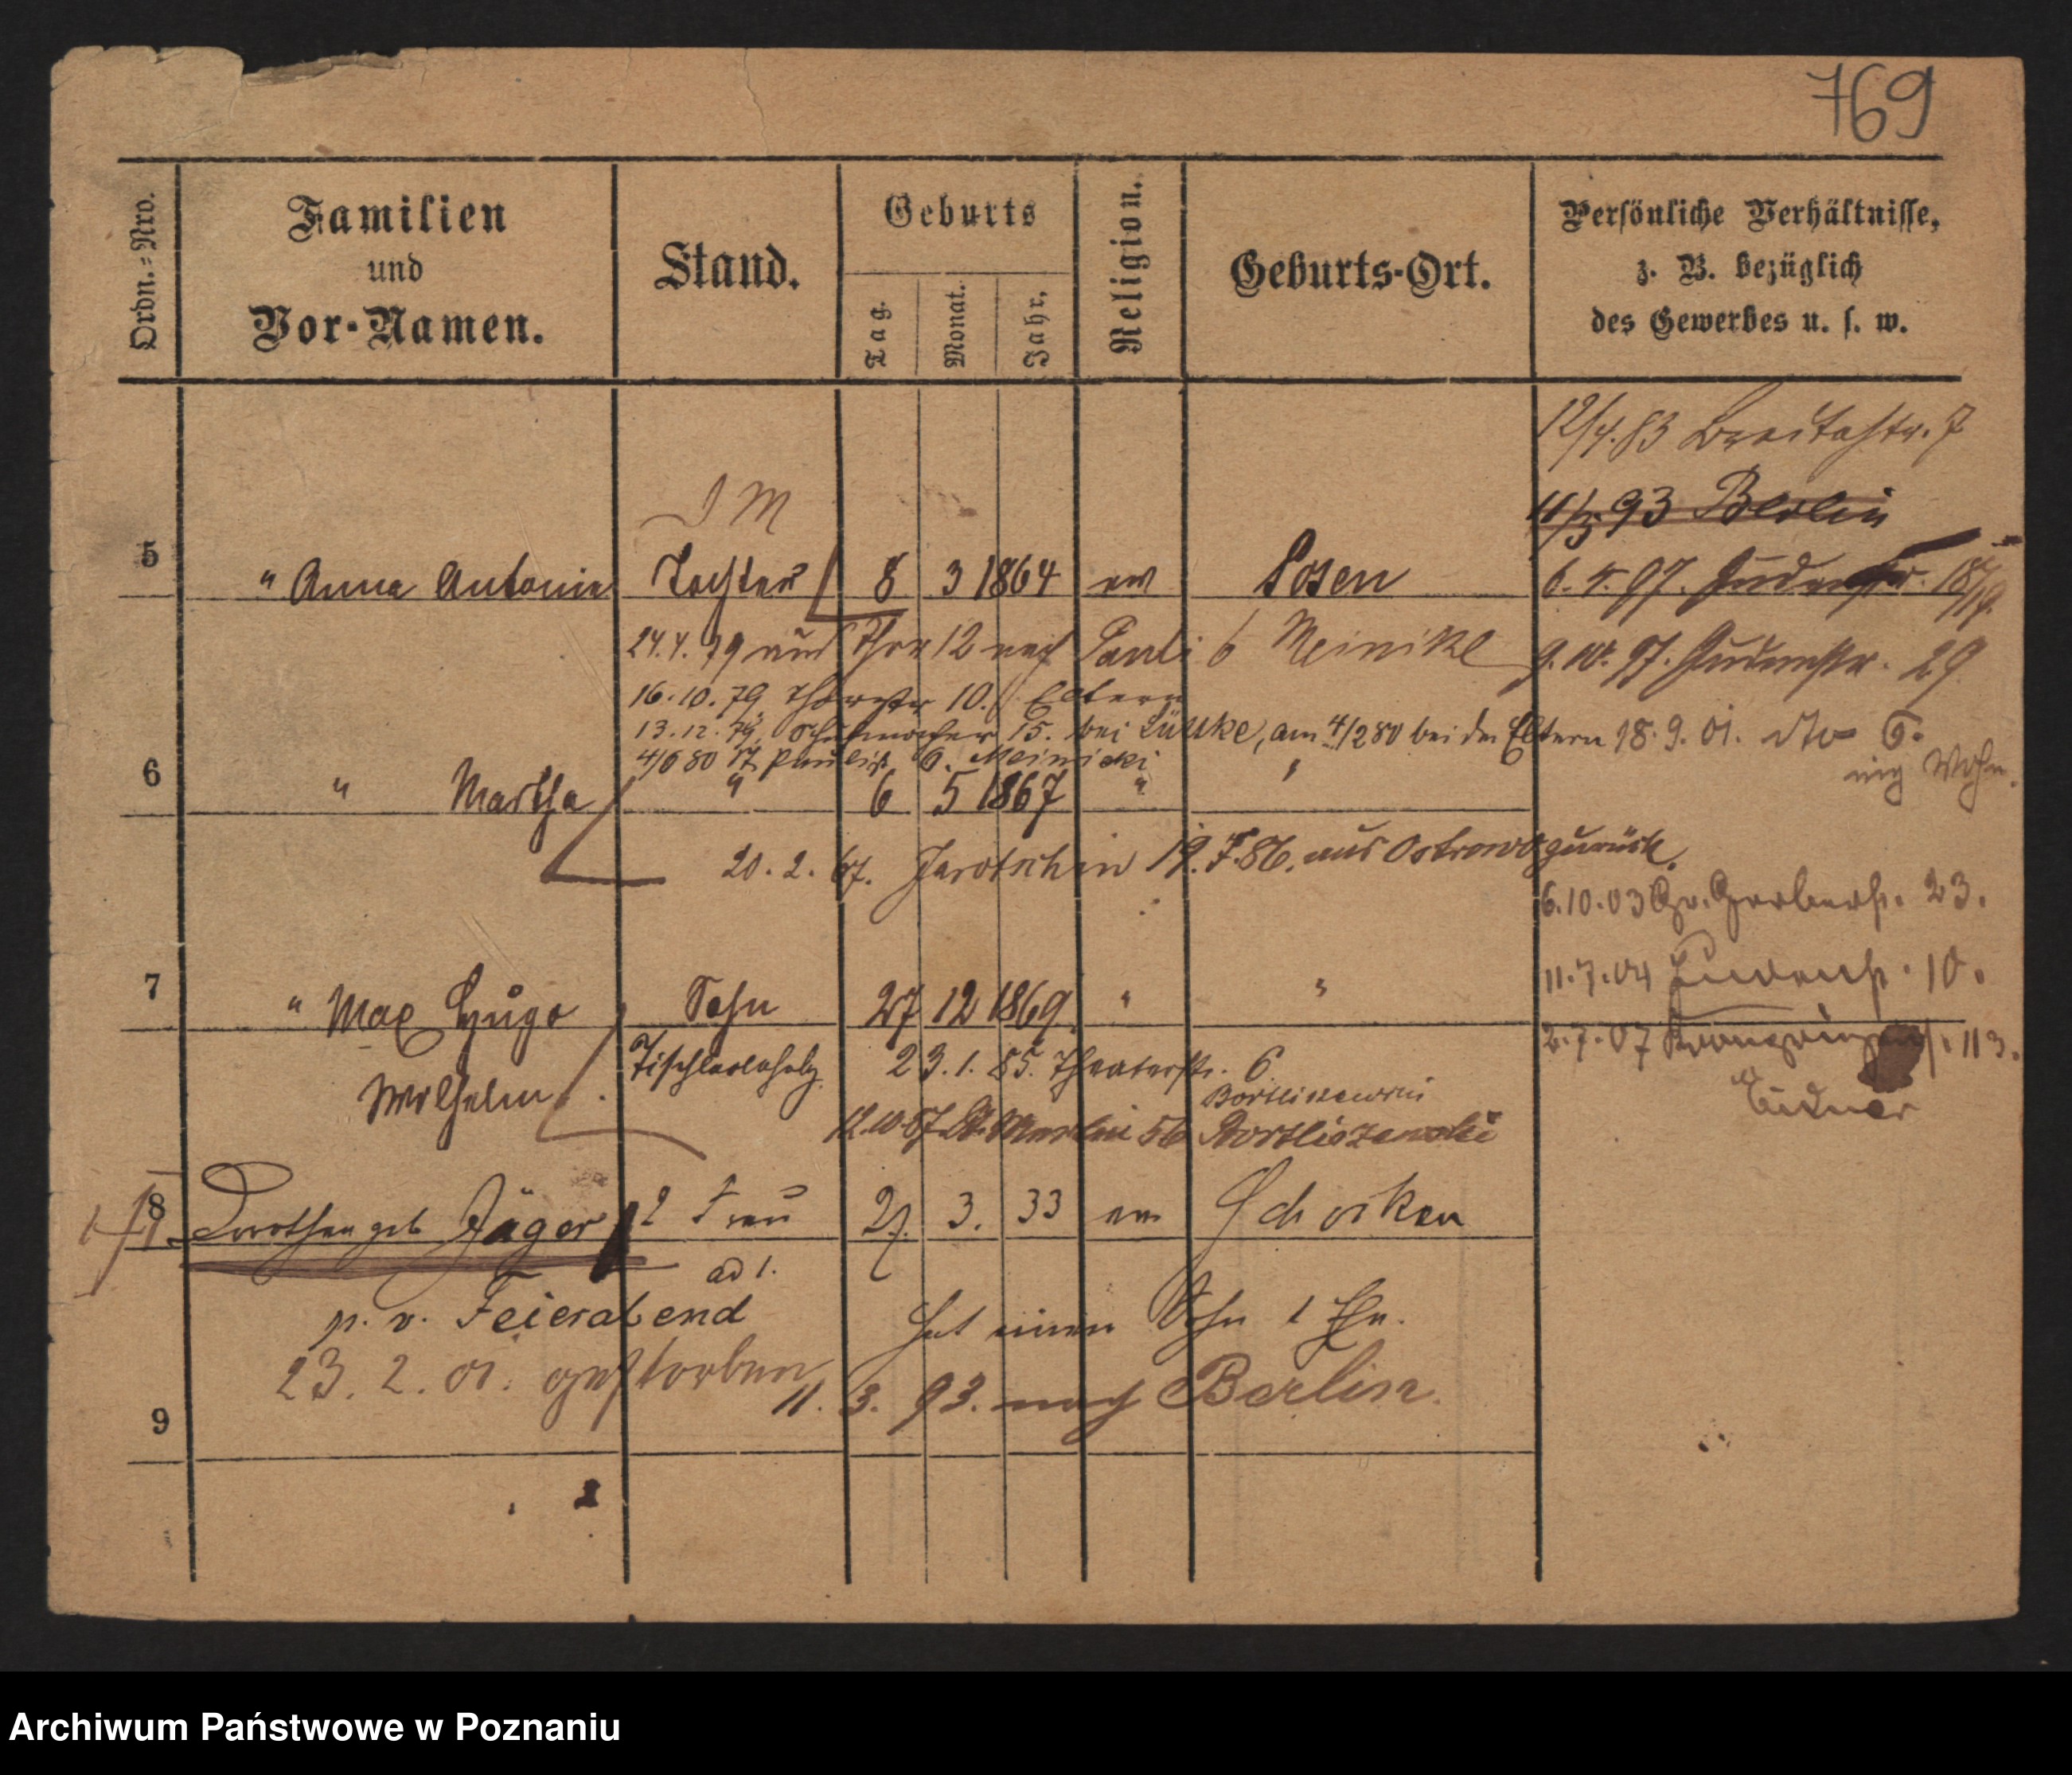 769
Ordn.-Nro.
Familien
und
Vor-Namen.
Stand.
Geburts
Tag.
Monat.
Jahr.
Religion.
Geburts-Ort.
Persönliche Verhältnisse,
z. B. bezüglich
des Gewerbes u. s. w.
12/4.83 Breitestr. 7
11/3 93 Berlin
5 " Anna Antonie Tochter 8 3 1864 ev Posen
6. 4. 97. Judenstr. 18/19.
24.4.79 aus Thor 12 nach Pauli 6 Meinike
9. 10. 97. Judenstr. 29
16.10.79 10. Eltern
13.12.79. Schuhmacher 15. bei Lüttke, am 4/2 80 bei den Eltern
18.9.01. dto 6.
4/6 80 Paulistr 6. Meinicki
Wohn.
6 " Martha " 6 5 1867 " "
20. 2. 67. Jarotschin 19. 7. 86. aus Ostrowo zurück.
6.10.03 Gr. Gerberstr. 23.
11.7.04 Judenstr. 10.
7 " Max Hugo Sohn 27 12 1869 " "
Wilhelm
Tischlerlehrlg. 23.1.85. Theaterstr. 6
2.7.07 Kronprinzenstr. 113.
12.10.87 St. Martin 56 Bortliszewski
8 Dorothea geb Jäger 2 Frau 27. 3. 33 ev Schocken
ad 1.
p. v. Feierabend
hat einen Sohn
23. 2. 01. gestorben
11. 3. 93. nach Berlin.
9
Archiwum Państwowe w Poznaniu